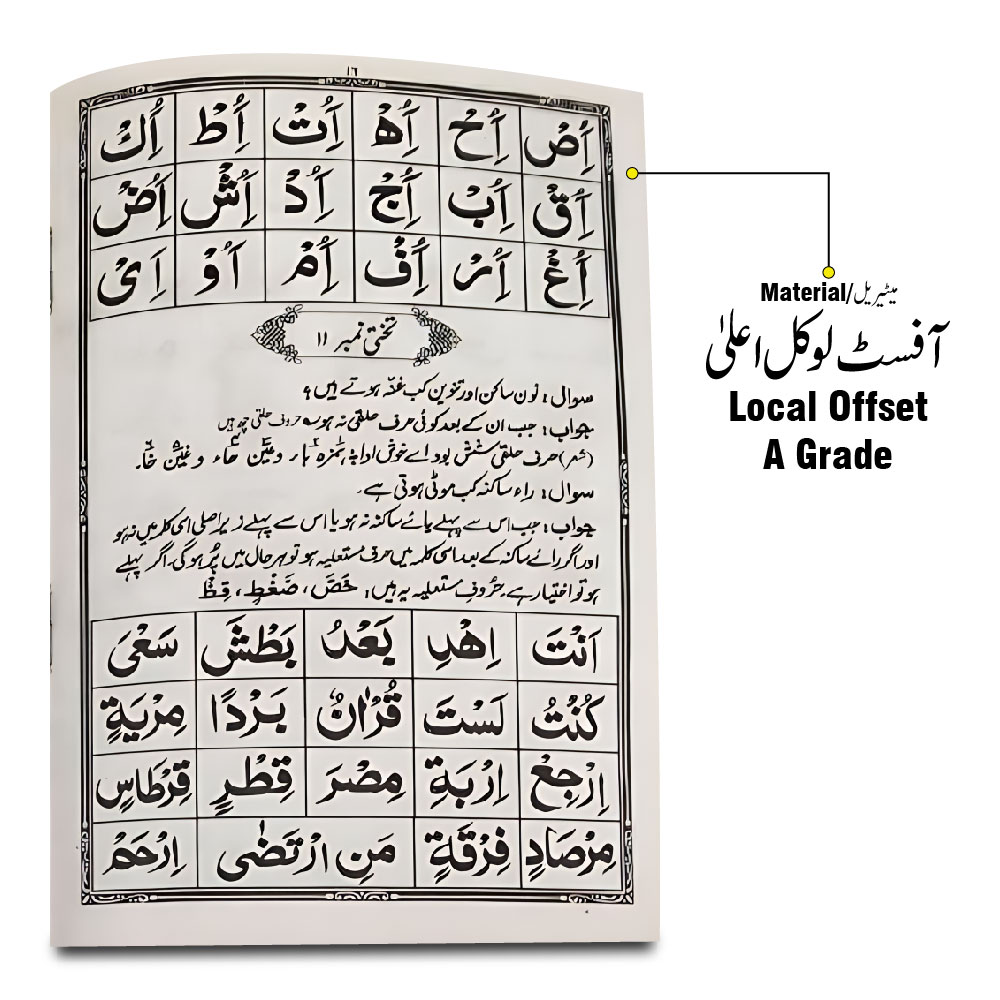 ١٦
اُصْ اُحْ اُهْ اُتْ اُطْ اُكْ
اُقْ اُبْ اُجْ اُدْ اُشْ اُضْ
اُغْ اُرْ اُفْ اُمْ اُوْ اِیْ
تختی نمبر ۱۱
سوال: نون ساکن اور تنوین کب غنّہ ہوتے ہیں؟
جواب: جب ان کے بعد کوئی حرف حلقی نہ ہو۔ حروف حلقی چھ ہیں
(شعر) حرف حلقی شش بود اے خوش ادا ہمزہ ہا و عین حاء و غین خا۔
سوال: راء ساکنہ کب موٹی ہوتی ہے۔
جواب: جب اس سے پہلے یائے ساکنہ نہ ہو یا اس سے پہلے زیر اصلی اسی کلمہ میں نہ ہو
اور اگر رائے ساکنہ کے بعد اسی کلمہ میں حرف مستعلیہ ہو تو ہر حال میں پُر ہوگی۔ اگر پہلے
ہو تو اختیار ہے۔ حروف مستعلیہ یہ ہیں: خُصَّ، ضَغْطٍ، قِظْ
اَنْتَ اِهْدِ بَعْدُ بَطْشَ سَعْیَ
كُنْتُ لَسْتَ قُرْاٰنٌ بَرْدًا مِرْيَةٍ
اِرْجِعْ اِرْبَةِ مِصْرَ قِطْرٍ قِرْطَاسٍ
مِرْصَادٍ فِرْقَةٍ مَنِ ارْتَضٰی اِرْحَمْ
Material/میٹیریل
آفسٹ لوکل اعلیٰ
Local Offset
A Grade